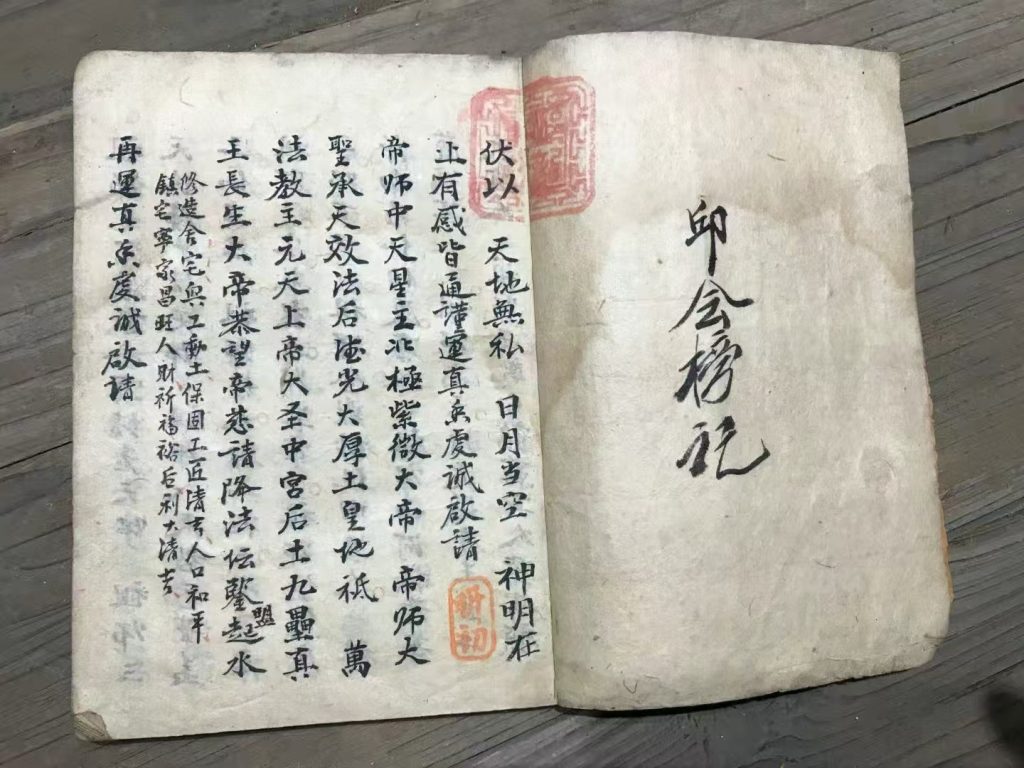 卬会榜記
伏以　天地無私　日月当空　神明在
上有感皆通謹運真香虔誠啟請
帝師中天星主北極紫微大帝　帝师大
聖承天效法后德光大厚土皇地祇　萬
法教主元天上帝大圣中宫后土九壘真
王長生大帝恭望帝慈请降法坛鑒盟起水
修造舍宅興工動土保固工匠清吉人口和平
鎮宅寧家昌旺人財祈福裕后利大清吉
再運真香虔誠啟請